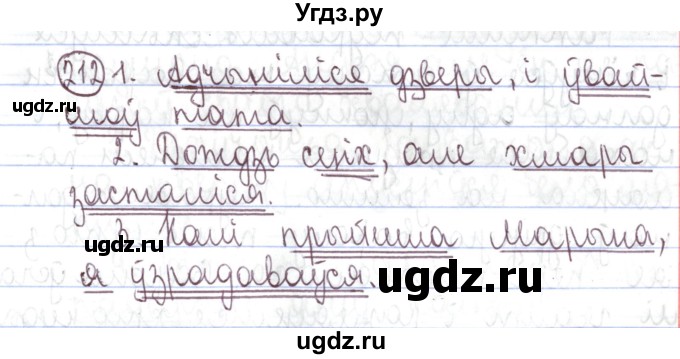 Угдз.ру
212 1. Адчыніліся дзверы, і ўвай-
шоў тата.
2. Дождж сціх, але хмары
засталіся.
3. Калі прыйшла Марына,
я ўзрадаваўся.
ugdz.ru
ugdz.ru
ugdz.ru
ugdz.ru
ugdz.ru
ugdz.ru
ugdz.ru